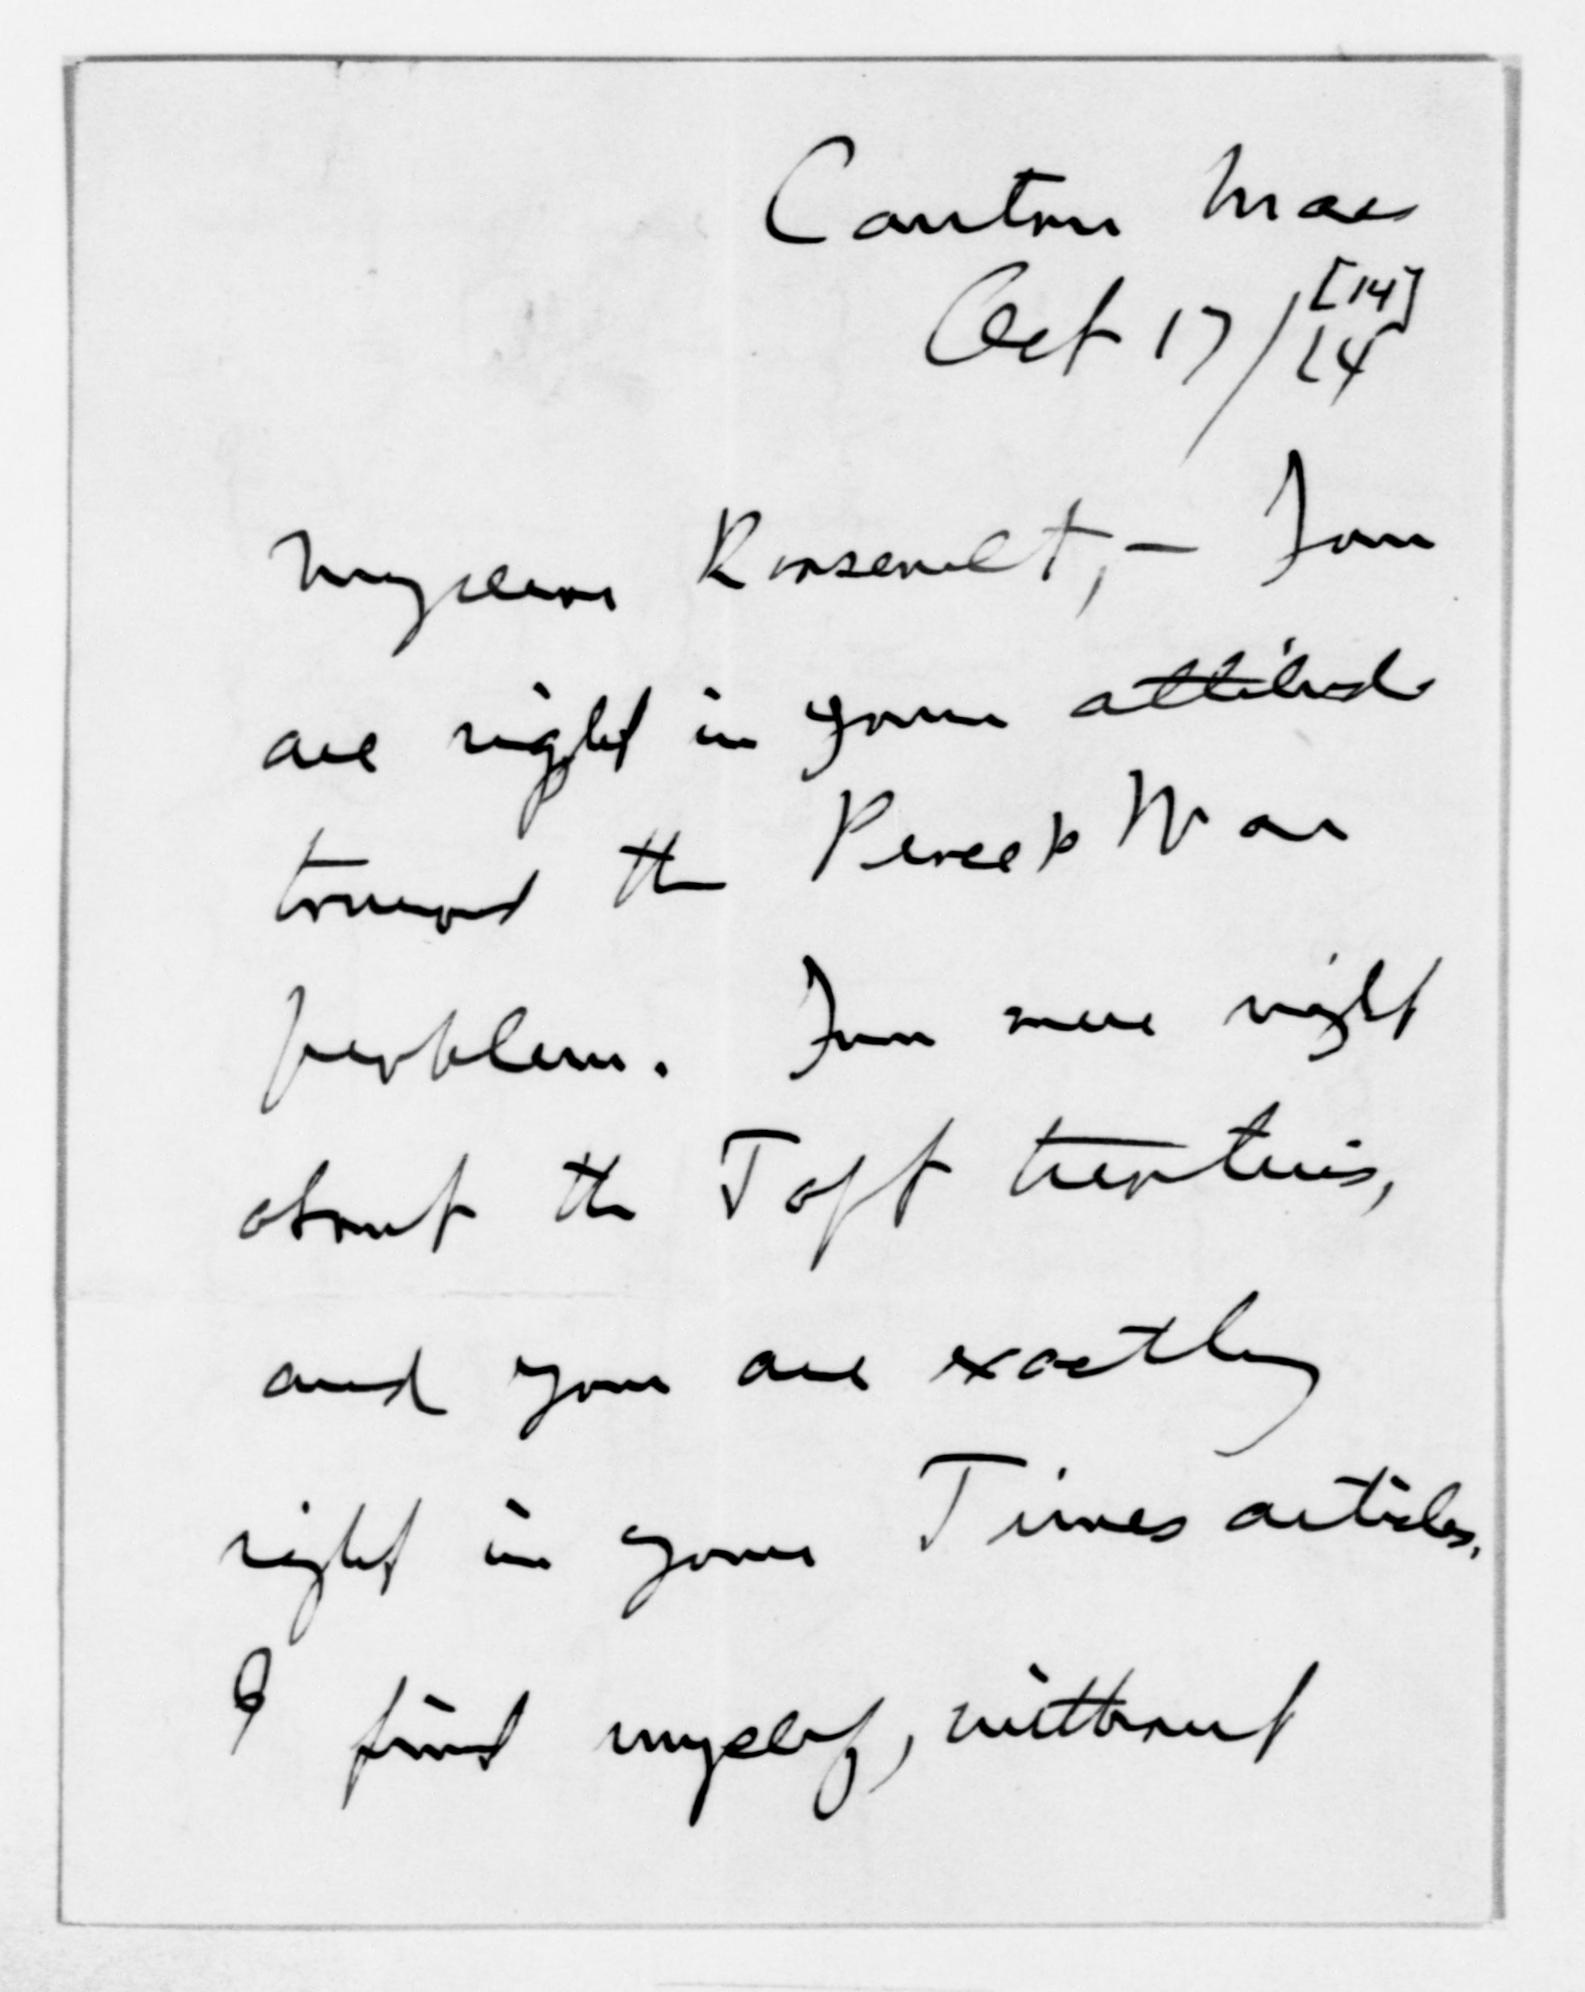 Canton Mass
Oct 17/14
[14]
My dear Roosevelt, — You
are right in your attitude
toward the Peace & War
problem. You were right
about the Taft treaties,
and you are exactly
right in your Times articles.
I find myself, without